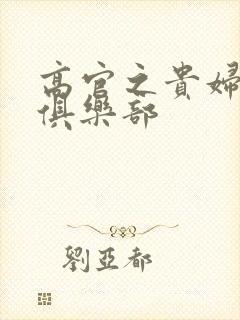 高官之貴婦
俱樂部
劉亞都